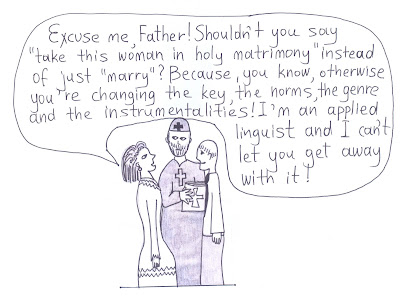 Excuse me, Father! Shouldn't you say
"take this woman in holy matrimony" instead
of just "marry"? Because, you know, otherwise
you're changing the key, the norms, the genre
and the instrumentalities! I'm an applied
linguist and I can't
let you get away
with it!